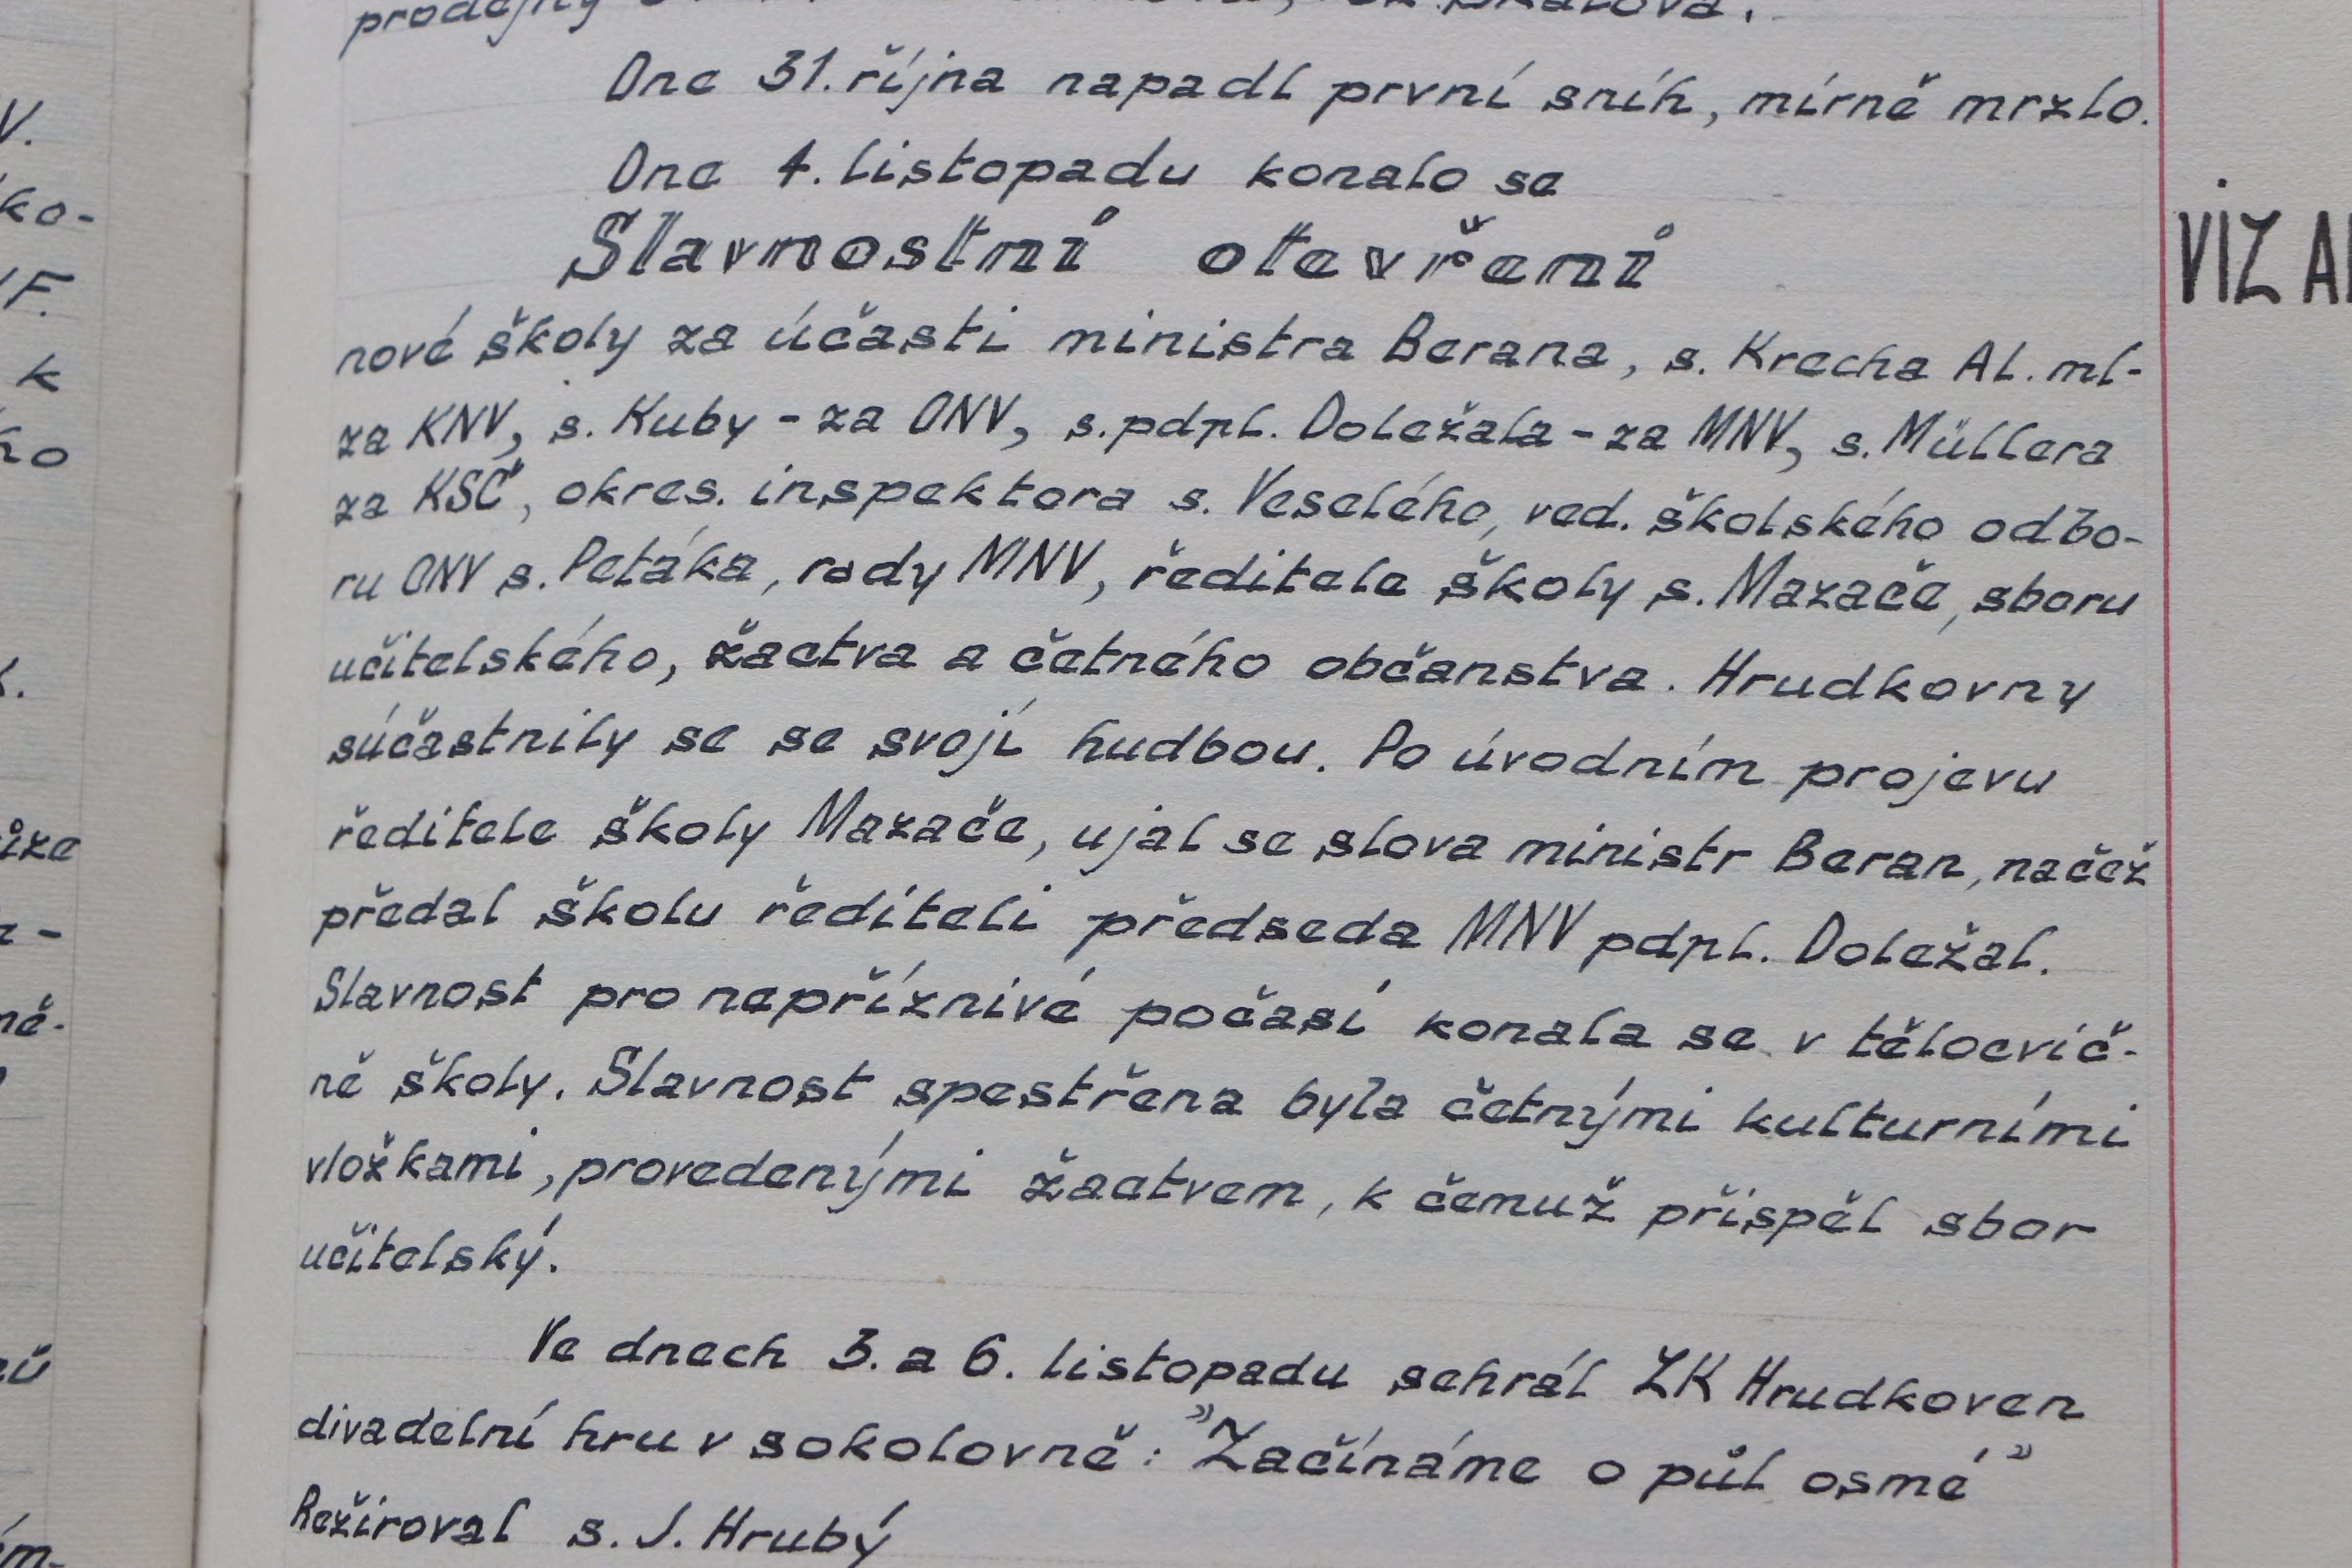 Dne 31. října napadl první sníh, mírně mrzlo.
Dne 4. listopadu konalo se
Slavnostní otevření
VIZ
nové školy za účasti ministra Berana, s. Krecha Al. ml-
za KNV, s. Kuby - za ONV, s. pdpl. Doležala - za MNV, s. Müllera
za KSČ, okres. inspektora s. Veselého, ved. školského odbo-
ru ONV s. Petáka, rady MNV, ředitele školy s. Mazače, sboru
učitelského, žactva a četného občanstva. Hrudkovny
súčastnily se se svojí hudbou. Po úvodním projevu
ředitele školy Mazače, ujal se slova ministr Beran, načež
předal školu řediteli předseda MNV pdpl. Doležal.
Slavnost pro nepříznivé počasí konala se v tělocvič-
ně školy. Slavnost spestřena byla četnými kulturními
vložkami, provedenými žactvem, k čemuž přispěl sbor
učitelský.
Ve dnech 3. a 6. listopadu sehrál ZK Hrudkoven
divadelní hru v sokolovně: "Začínáme o půl osmé"
Režíroval s. J. Hrubý